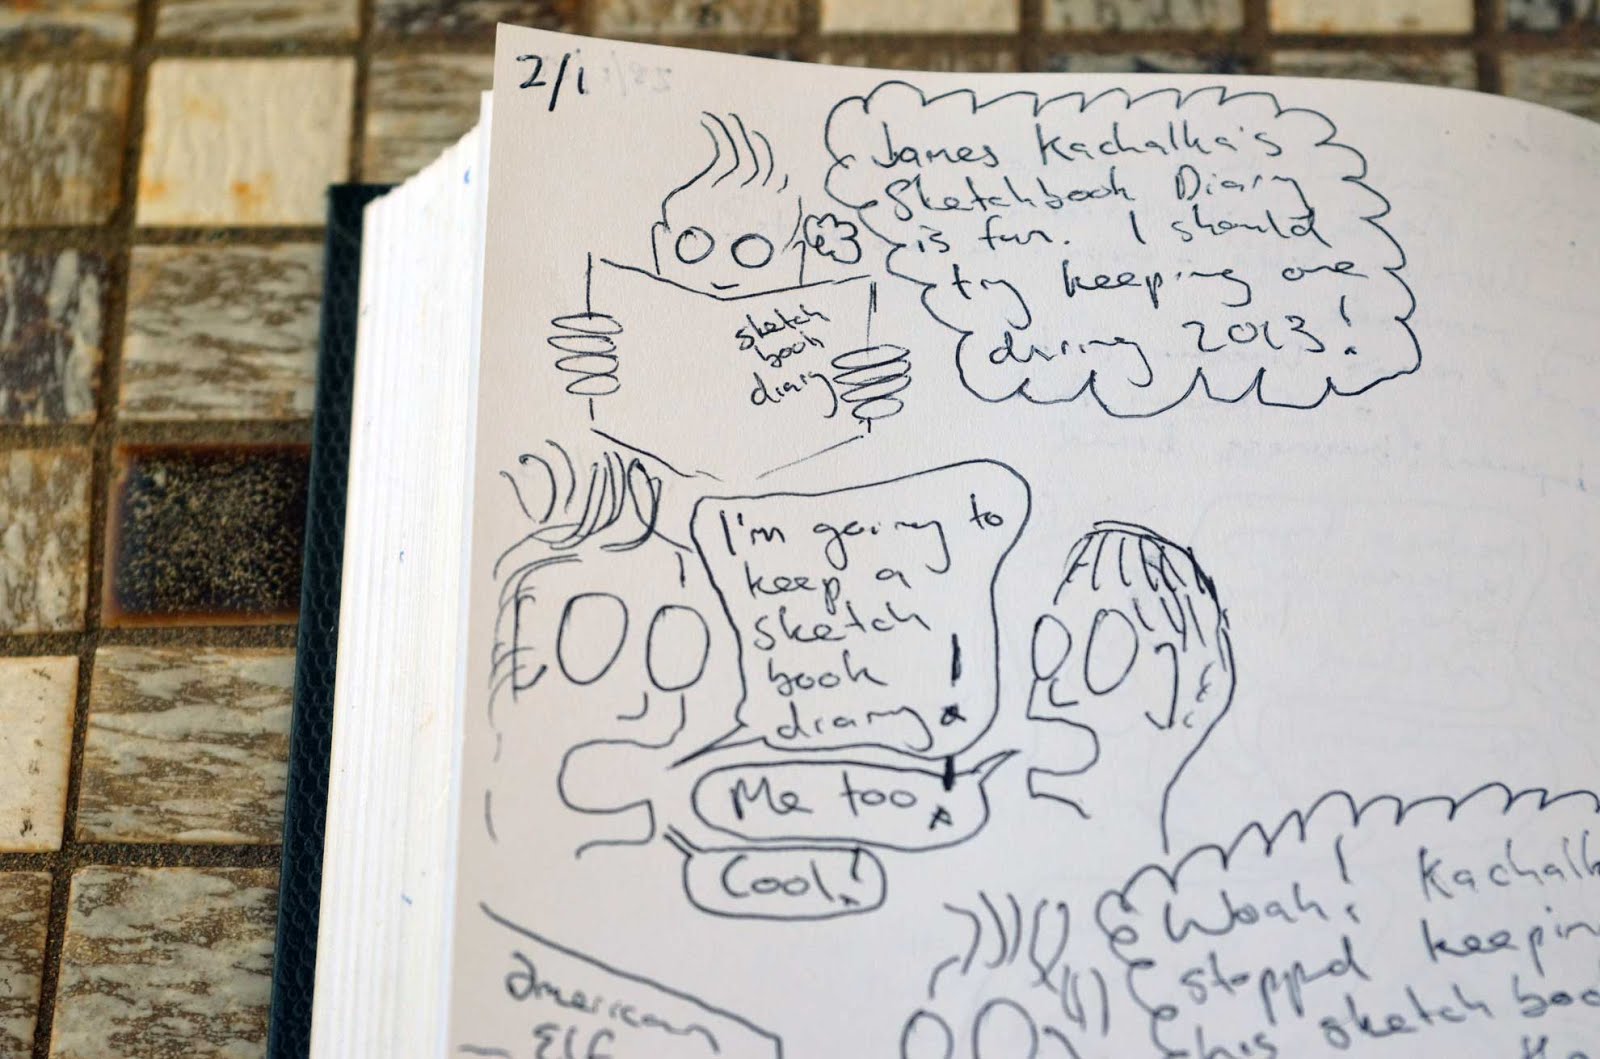 2/1
James Kachalka's
Sketchbook Diary
is fun. I should
try keeping one
during 2013!
sketch
book
diary
I'm going to
keep a
sketch
book
diary!
Me too!
Cool!
Woah! Kachalk
stopped keeping
this sketch boo
American
Elf